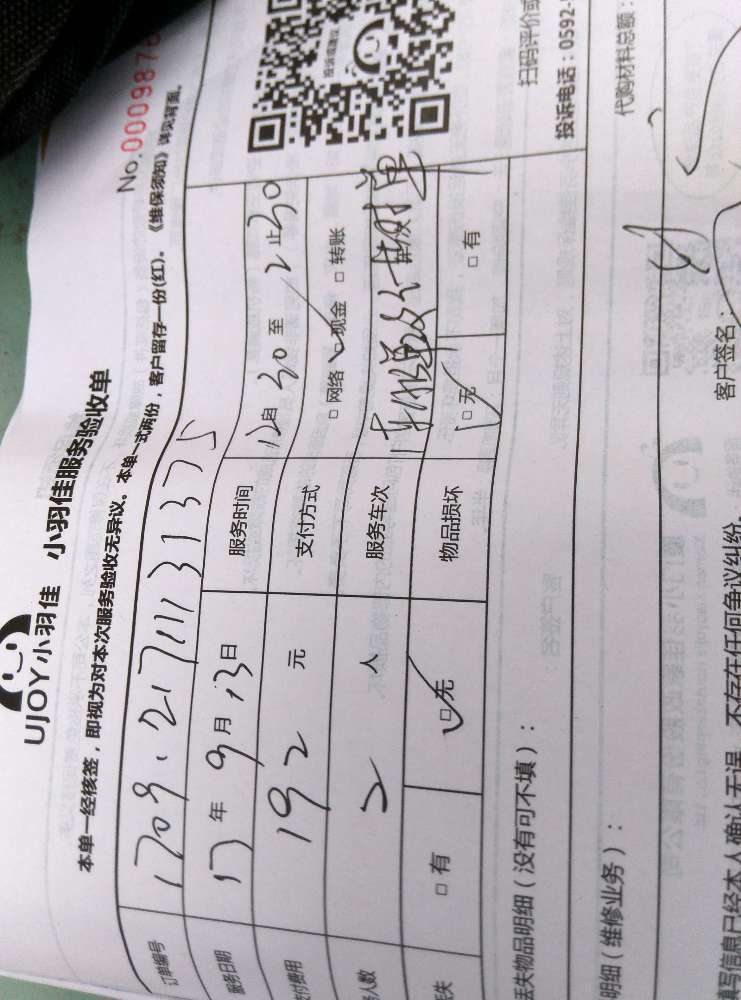 No.000987
UJOY小羽佳 小羽佳服务验收单
本单一经核签，即视为对本次服务验收无异议。本单一式两份，客户留存一份(红)。《维保须知》详见背面。
订单编号 1709.217111131375
服务日期 17年9月13日 服务时间 12时30至2止30
付费用 192元 支付方式 □网络 □现金 □转账
人数 2人 服务车次
失 □有 □无 物品损坏 □无 □有
投诉或建议
扫码评价或
投诉电话：0592-
丢失物品明细（没有可不填）：
明细（维修业务）：
代购材料总额：
填写信息已经本人确认无误，不存在任何争议纠纷。
客户签名：